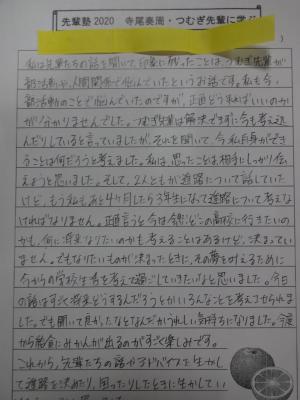 先輩塾2020 寺尾奏周・つむぎ先輩に学ぶ
私は先輩たちの話を聞いて、印象に残ったことは、つむぎ先輩が
部活動や、人間関係で悩んでいたというお話です。私も今、
部活動のことで悩んでいたのですが、正直どうすればいいのか
が分かりませんでした。つむぎ先輩は解決できずに今も考え込
んだりしていると言っていましたが、それを聞いて、今私自身ができ
ることは何だろうと考えました。私は、思ったことは相手にしっかり伝
えようと思いました。そして、2人ともが進路について話してい
たけど、もう私もあと4ヶ月したら3年生になって進路について考え
なければなりません。正直言うと今は全然どこの高校に行きたいの
かも、何に将来なりたいのかも考えることはあるけど、決まってい
ません。でもなりたいものが決まったときに、その夢を叶えるために
今からの学校生活を考えて過ごしていきたいなと思いました。今日
の話はすごく将来どうするんだろうとかいろんなことを考えさせられま
した。でも聞いて良かったなとなんだかうれしい気持ちになりました。今度
から給食にみかんが出るのがすごく楽しみです。
これから、先輩たちの話やアドバイスを生かし
て進路を決めたり、困ったりしたときに生かしてい